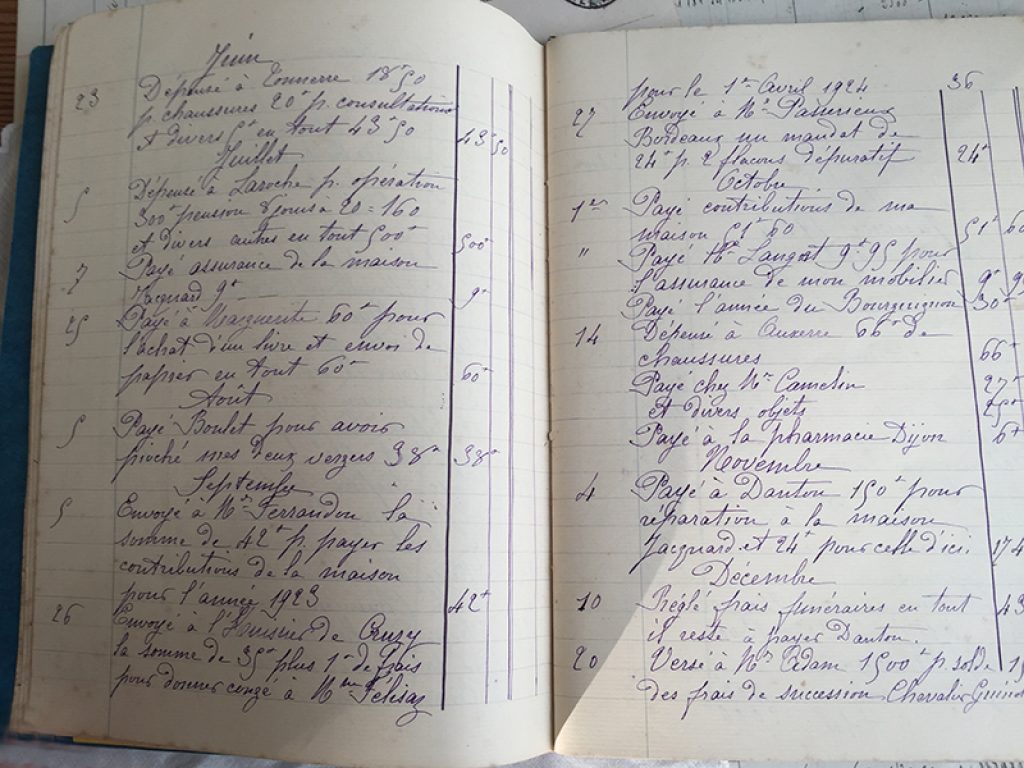 Juin
23 Dépensé à Tonnerre 18f50
p. chaussures 20f p. consultations
et divers 5f en tout 43f50 43 50
Juillet
5 Dépensé à Laroche p. opération
300f pension 8 jours à 20 = 160
et divers autres en tout 500f 500f
7 Payé assurance de la maison
Jacquard 9f 9f
25 Payé à Marguerite 60f pour
l'achat d'un livre et envoi de
papier en tout 60f 60f
Août
5 Payé Boulet pour avoir
pioché mes deux vergers 38f 38f
Septembre
5 Envoyé à Mr Ferrandon la
somme de 42f p. payer les
contributions de la maison
pour l'année 1923 42f
26 Envoyé à l'huissier de Cruzy
la somme de 35f plus 1f de frais
pour donner congé à Mme Félisaz
pour le 1er Avril 1924 36
27 Envoyé à Mr
Bordeaux un mandat de
24f p. 2 flacons dépuratif 24f
Octobre
1er Payé contributions de ma
maison 51f60 51f 60
" Payé Mr Langot 9f95 pour
l'assurance de mon mobilier 9f 9
Payé l'année du Bourguignon 30f
14 Dépensé à Auxerre 66f de
chaussures 66f
Payé chez Mr Camelin 27f
et divers objets 25f
Payé à la pharmacie Dijon 6f
Novembre
4 Payé à Danton 150f pour
réparation à la maison
Jacquard et 24f pour celle d'ici 174
Décembre
10 Réglé frais funéraires en tout 43
il reste à payer Danton.
20 Versé à Mr Adam 1500f p. solde 15
des frais de succession Chevalier